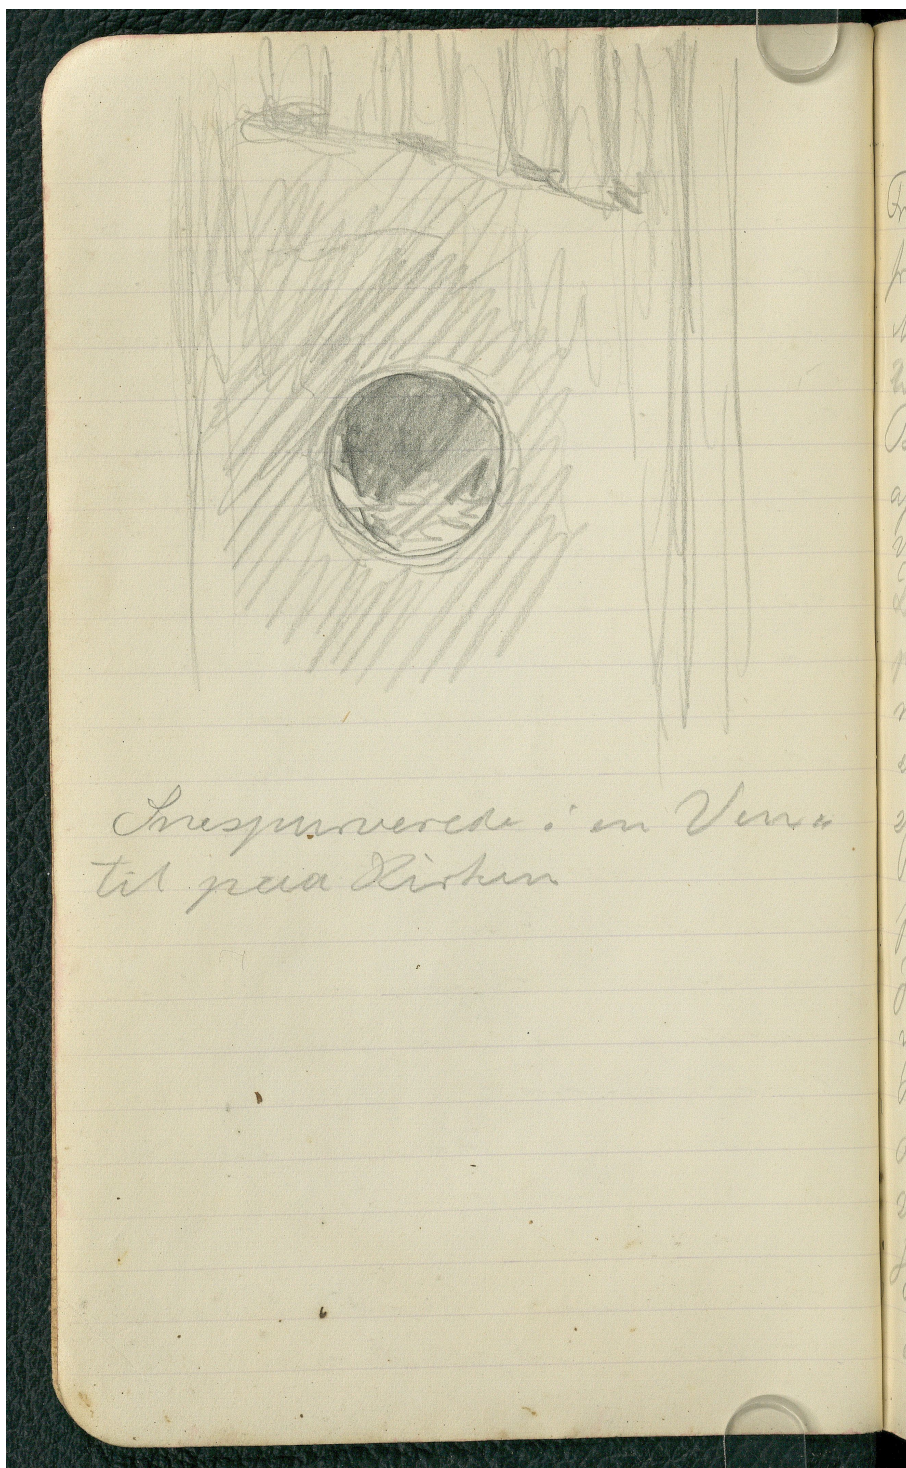 Snespurverede i en Ven=
til paa Kirken